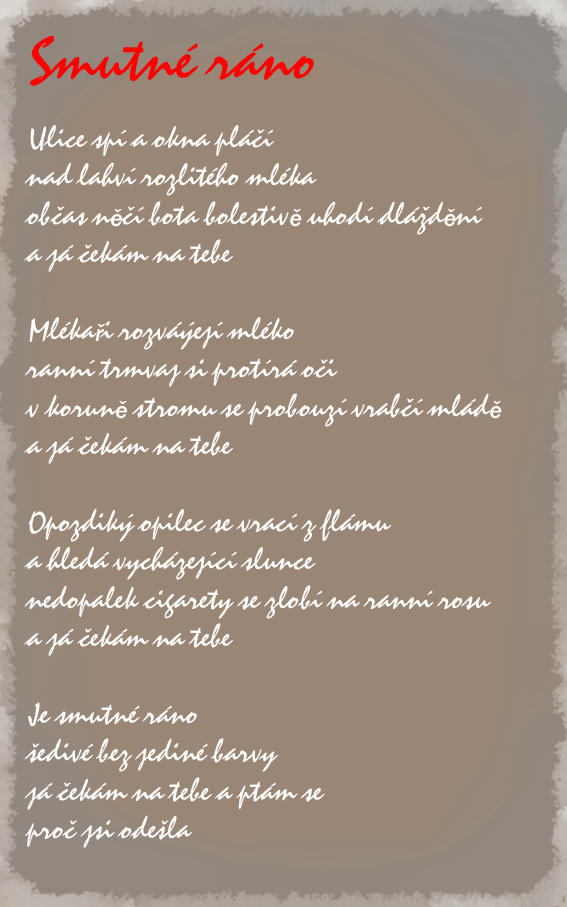 Smutné ráno
Ulice spí a okna pláčí
nad lahví rozlitého mléka
občas něčí bota bolestivě uhodí dláždění
a já čekám na tebe
Mlékaři rozváýejí mléko
ranní trmvaj si protírá oči
v koruně stromu se probouzí vrabčí mládě
a já čekám na tebe
Opozdiký opilec se vrací z flámu
a hledá vycházející slunce
nedopalek cigarety se zlobí na ranní rosu
a já čekám na tebe
Je smutné ráno
šedivé bez jediné barvy
já čekám na tebe a ptám se
proč jsi odešla